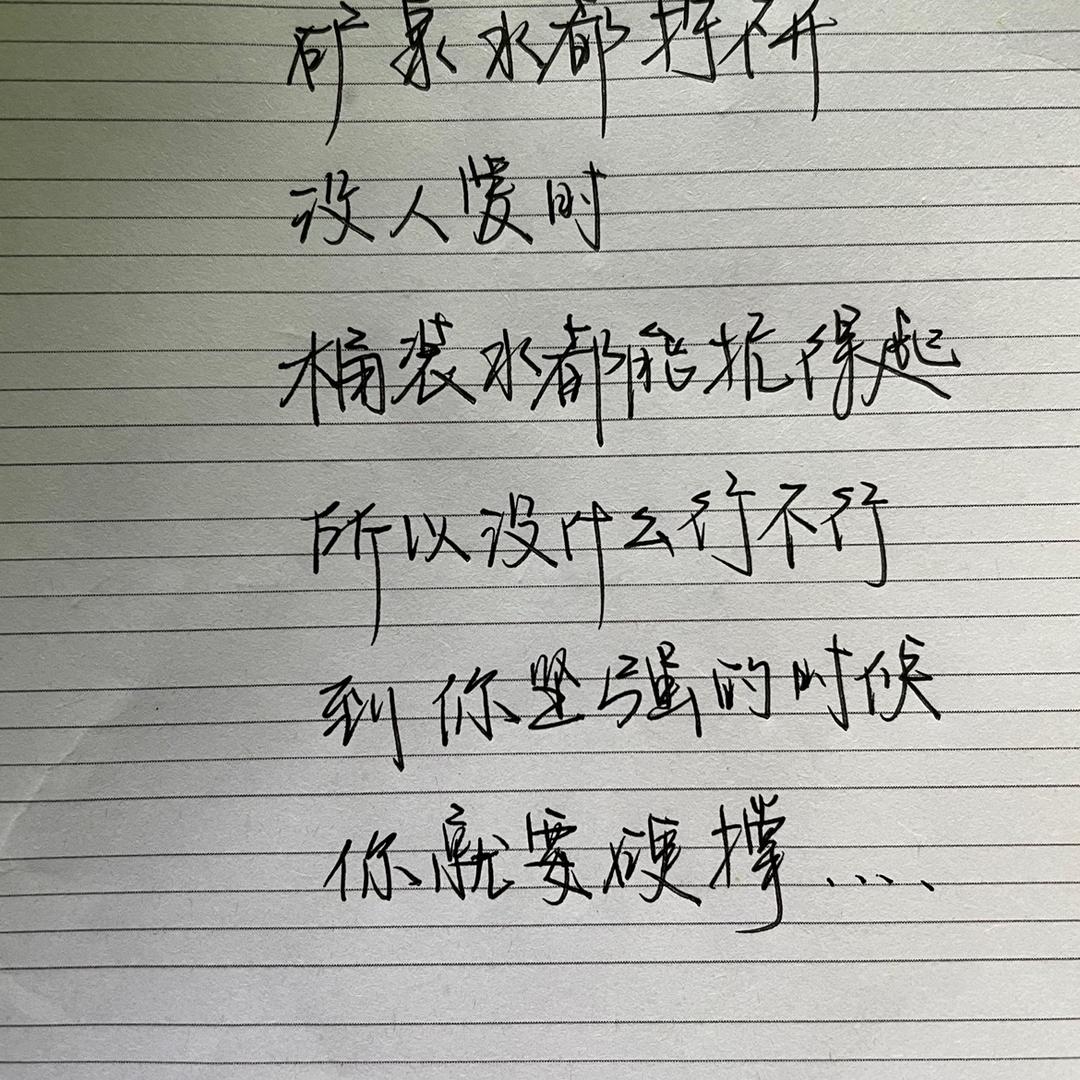 矿泉水都拧不开
没人爱时
桶装水都能扛得起
所以没什么行不行
到你坚强的时候
你就要硬撑....